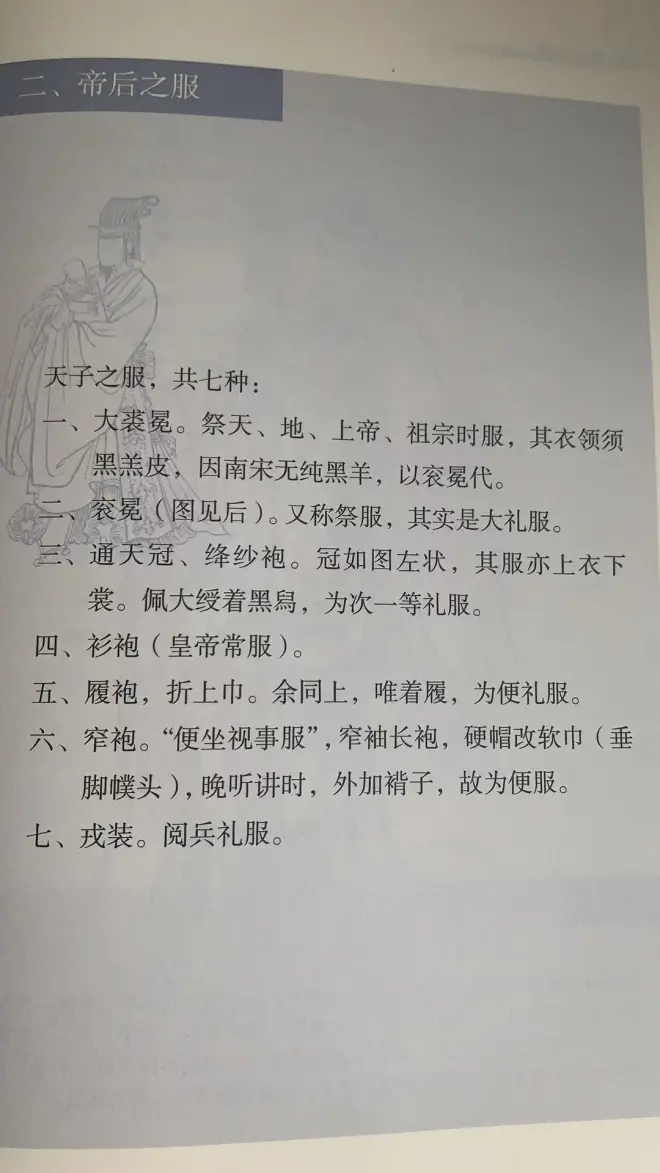 二、帝后之服
天子之服，共七种：
一、大裘冕。祭天、地、上帝、祖宗时服，其衣领须
黑羔皮，因南宋无纯黑羊，以衮冕代。
二、衮冕（图见后）。又称祭服，其实是大礼服。
三、通天冠、绛纱袍。冠如图左状，其服亦上衣下
裳。佩大绶着黑舄，为次一等礼服。
四、衫袍（皇帝常服）。
五、履袍，折上巾。余同上，唯着履，为便礼服。
六、窄袍。“便坐视事服”，窄袖长袍，硬帽改软巾（垂
脚幞头），晚听讲时，外加褙子，故为便服。
七、戎装。阅兵礼服。